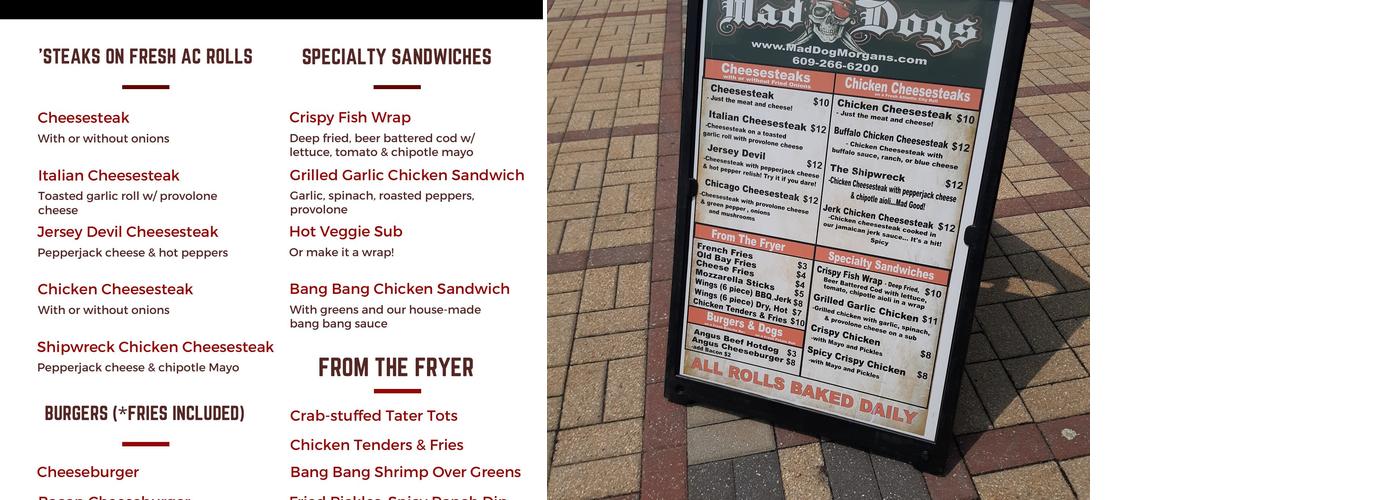 'STEAKS ON FRESH AC ROLLS
Cheesesteak
With or without onions
Italian Cheesesteak
Toasted garlic roll w/ provolone
cheese
Jersey Devil Cheesesteak
Pepperjack cheese & hot peppers
Chicken Cheesesteak
With or without onions
Shipwreck Chicken Cheesesteak
Pepperjack cheese & chipotle Mayo
BURGERS (*FRIES INCLUDED)
Cheeseburger
Bacon Cheeseburger
SPECIALTY SANDWICHES
Crispy Fish Wrap
Deep fried, beer battered cod w/
lettuce, tomato & chipotle mayo
Grilled Garlic Chicken Sandwich
Garlic, spinach, roasted peppers,
provolone
Hot Veggie Sub
Or make it a wrap!
Bang Bang Chicken Sandwich
With greens and our house-made
bang bang sauce
FROM THE FRYER
Crab-stuffed Tater Tots
Chicken Tenders & Fries
Bang Bang Shrimp Over Greens
Fried Pickles, Spicy Ranch Dip
Mad Dogs
www.MadDogMorgans.com
609-266-6200
Cheesesteaks
with or without Fried Onions
Cheesesteak $10
- Just the meat and cheese!
Italian Cheesesteak $12
-Cheesesteak on a toasted
garlic roll with provolone cheese
Jersey Devil $12
-Cheesesteak with pepperjack cheese
& hot pepper relish! Try it if you dare!
Chicago Cheesesteak $12
-Cheesesteak with provolone cheese
& green pepper , onions
and mushrooms
From The Fryer
French Fries $3
Old Bay Fries $4
Cheese Fries $4
Mozzarella Sticks $5
Wings (6 piece) BBQ,Jerk $8
Wings (6 piece) Dry, Hot $7
Chicken Tenders & Fries $10
Burgers & Dogs
Angus Beef Hotdog $3
Angus Cheeseburger $8
-add Bacon $2
Chicken Cheesesteaks
on a Fresh Atlantic City Roll
Chicken Cheesesteak $10
- Just the meat and cheese!
Buffalo Chicken Cheesesteak $12
- Chicken Cheesesteak with
buffalo sauce, ranch, or blue cheese
The Shipwreck $12
-Chicken Cheesesteak with pepperjack cheese
& chipotle aioli...Mad Good!
Jerk Chicken Cheesesteak $12
-Chicken cheesesteak cooked in
our jamaican jerk sauce... It's a hit!
Spicy
Specialty Sandwiches
Crispy Fish Wrap - Deep Fried, $10
Beer Battered Cod with lettuce,
tomato, chipotle aioli in a wrap
Grilled Garlic Chicken $11
-Grilled chicken with garlic, spinach,
& provolone cheese on a sub
Crispy Chicken $8
-with Mayo and Pickles
Spicy Crispy Chicken $8
-with Mayo and Pickles
ALL ROLLS BAKED DAILY